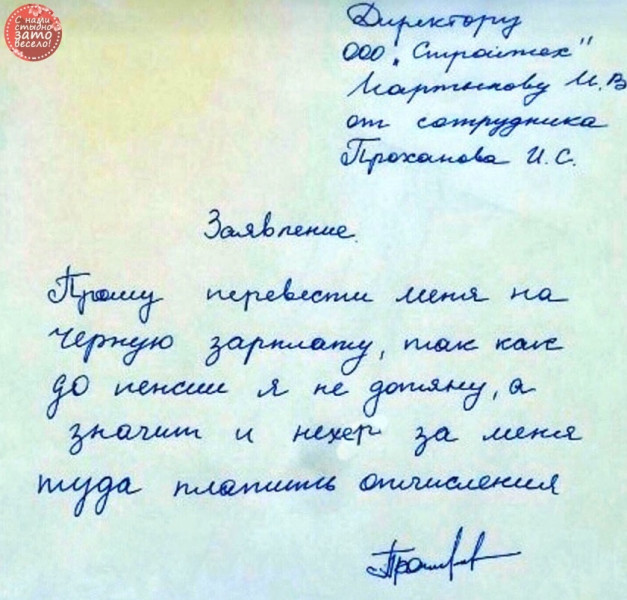 С нами
стыдно
зато
весело!
Директору
ООО „Стройтех"
Мартынову И.В
от сотрудника
Проханова И.С.
Заявление.
Прошу перевести меня на
черную зарплату, так как
до пенсии я не дотяну, а
значит и нехер за меня
туда платить отчисления